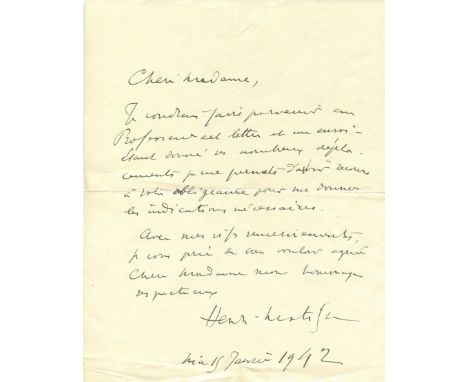 Chère Madame,
Je voudrais faire parvenir au
Professeur cet lettre et un envoi
étant donné ses nombreux dépla-
cements je me permets d'avoir recours
à votre obligeance pour me donner
les indications nécessaires.
Avec mes vifs remerciements,
je vous prie de bien vouloir agréer
Chère Madame mes hommages
respectueux
Henri-Matisse
Nice 15 Janvier 1942